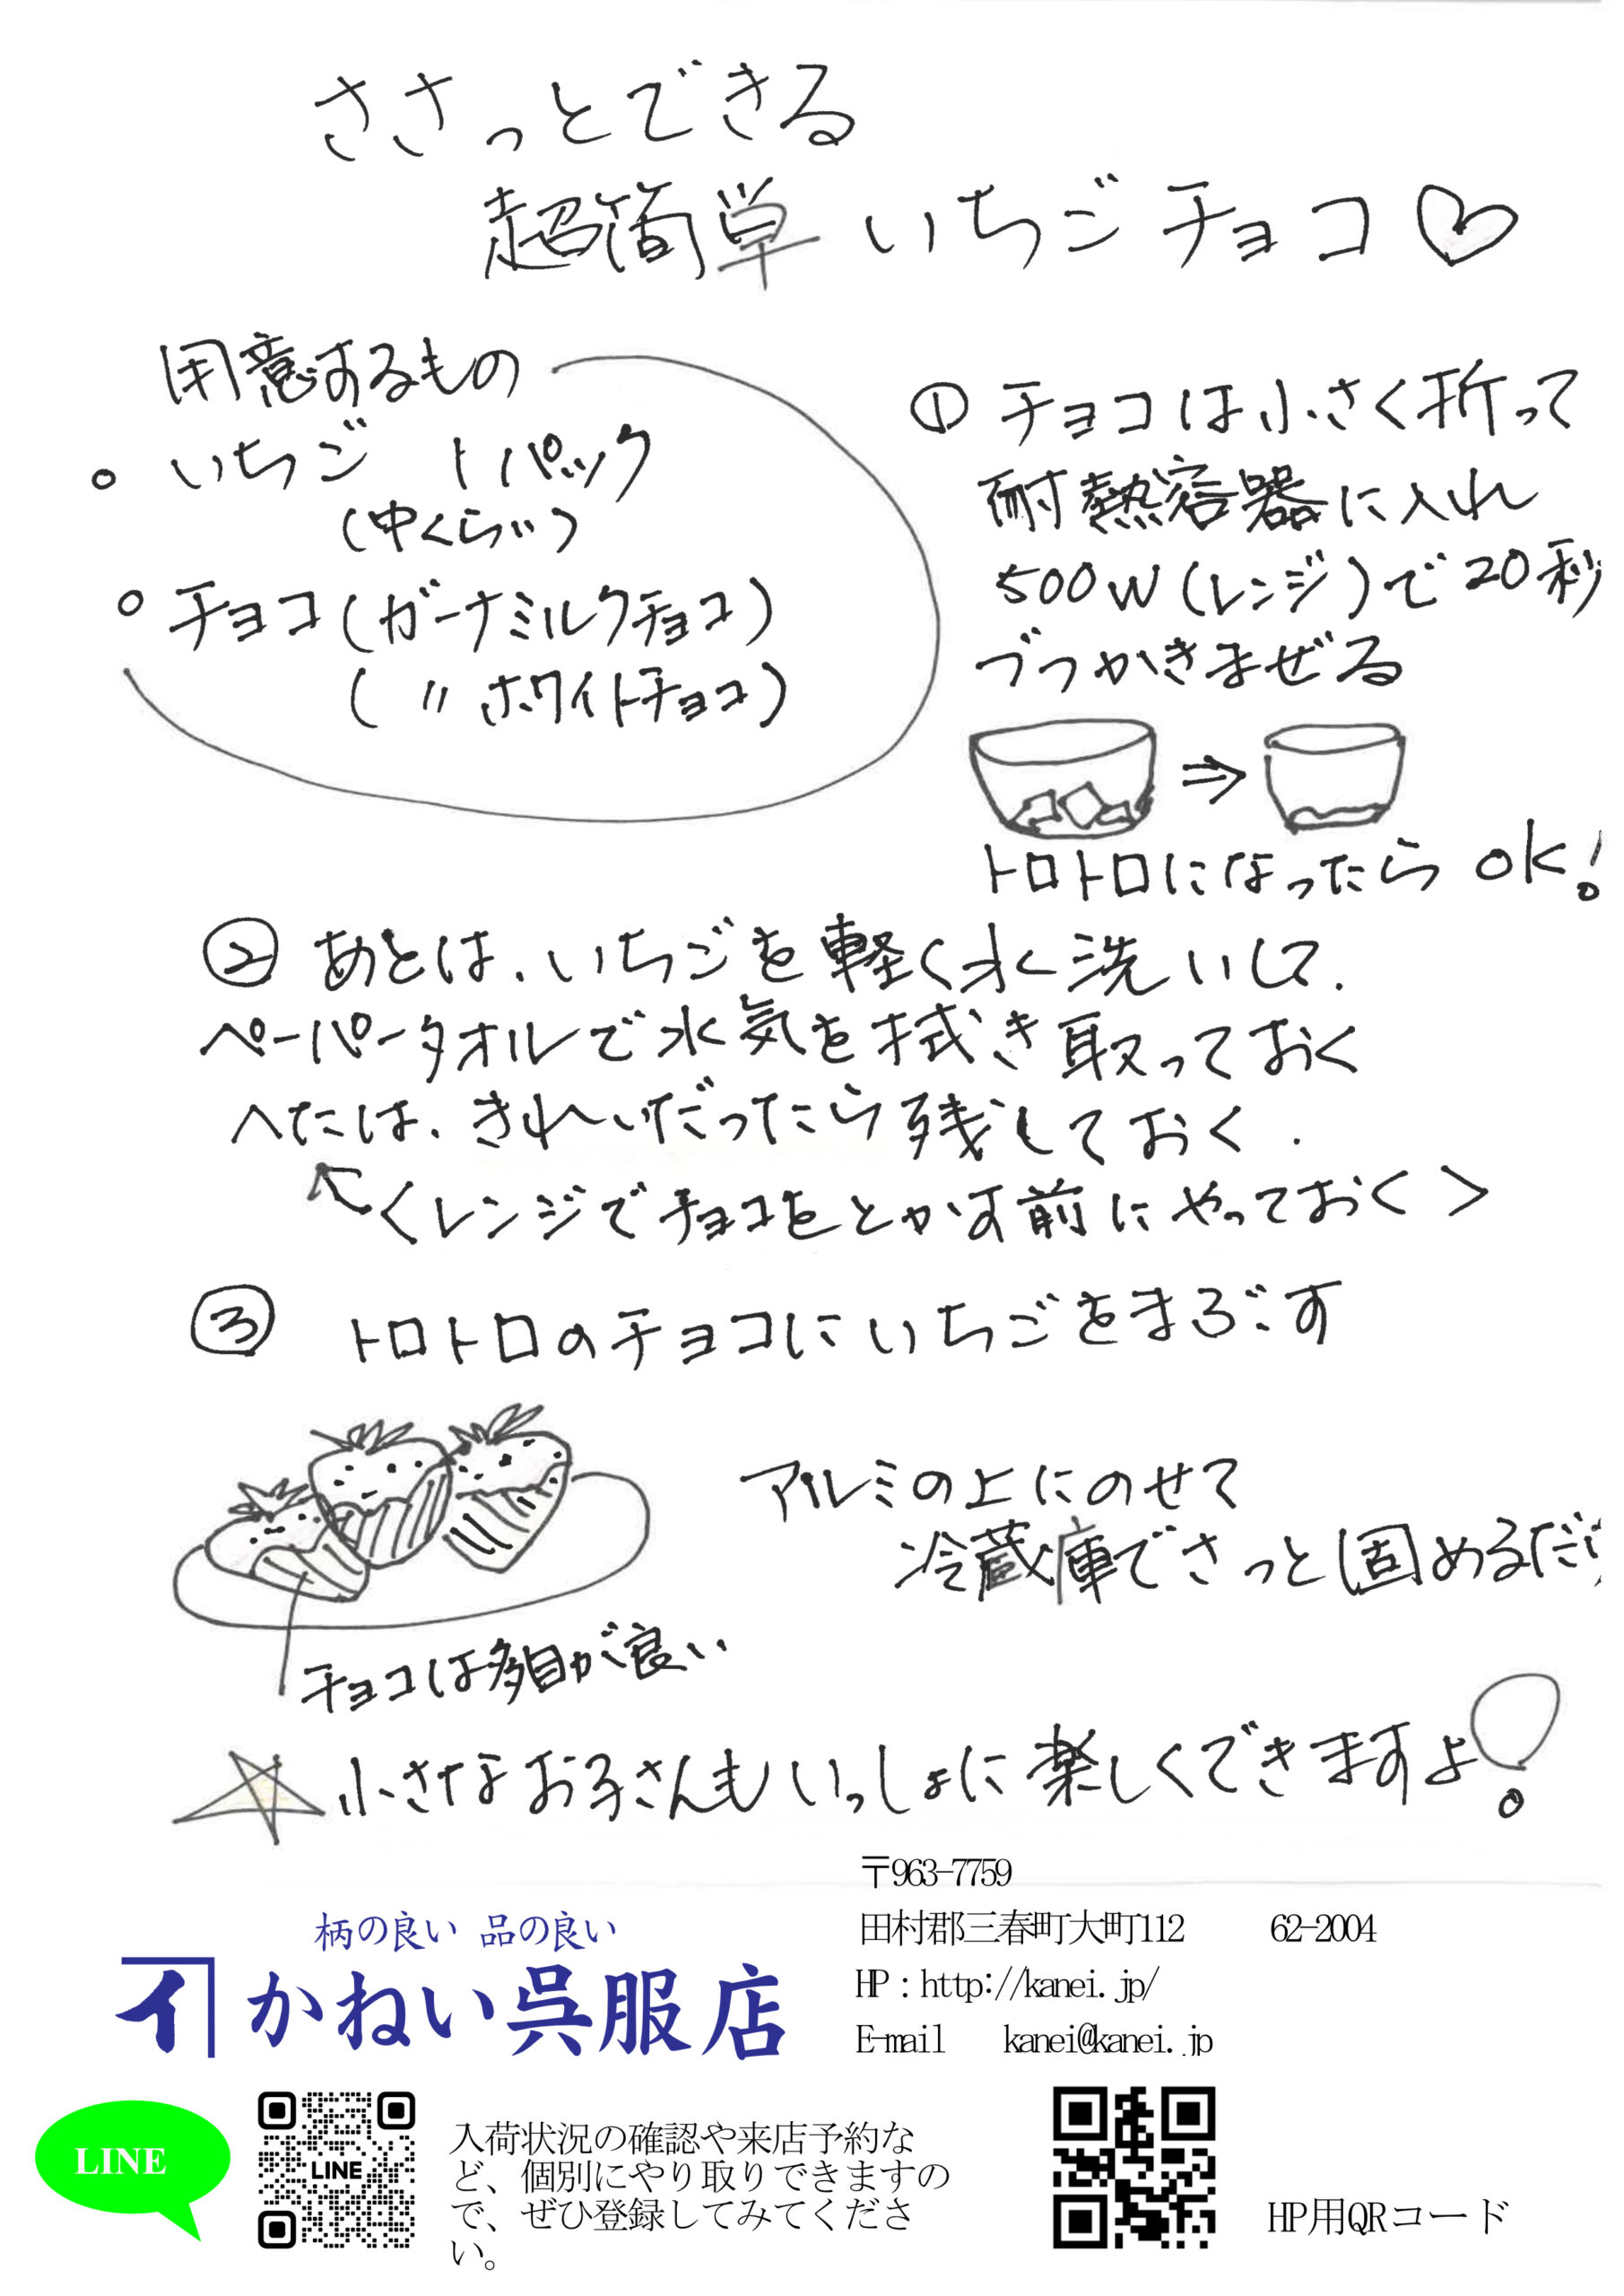 ささっとできる
超簡単 いちごチョコ♡
用意するもの
○ いちご 1パック
(中くらい)
○ チョコ(ガーナミルクチョコ)
( 〃 ホワイトチョコ)
① チョコは小さく折って
耐熱容器に入れ
500W(レンジ)で20秒
づつかきまぜる
⇒
トロトロになったら OK!
② あとは、いちごを軽く水洗いして、
ペーパータオルで水気を拭き取っておく
へたは、きれいだったら残しておく.
<レンジでチョコをとかす前にやっておく>
③ トロトロのチョコにいちごをまぶす
アルミの上にのせて
冷蔵庫でさっと固めるだけ
チョコは多目が良い
☆小さなお子さんもいっしょに楽しくできますよ!
〒963-7759
田村郡三春町大町112 62-2004
HP：http://kanei.jp/
E-mail kanei@kanei.jp
柄の良い 品の良い
イ かねい呉服店
LINE
LINE
入荷状況の確認や来店予約な
ど、個別にやり取りできますの
で、ぜひ登録してみてくださ
い。
HP用QRコード